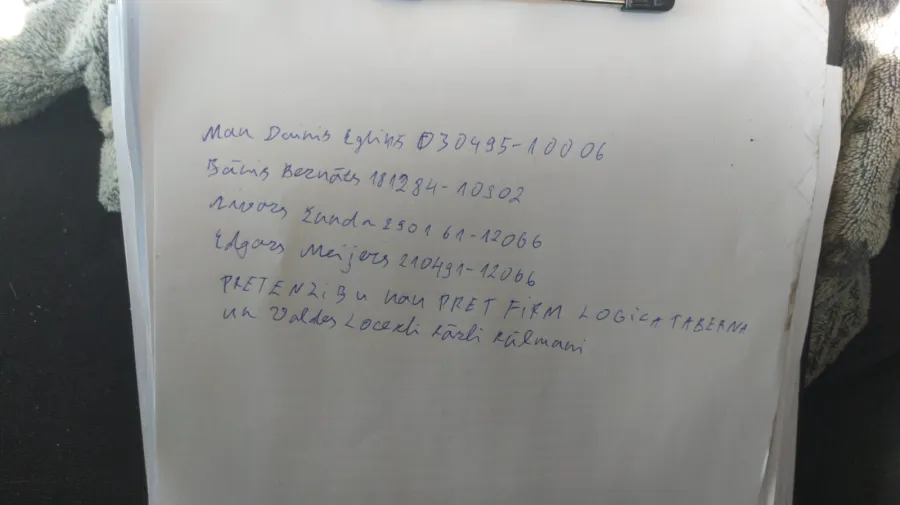 Man Dainis Egliņš 030495-10006
Bānis Bernāts 181284-10902
Aivars Zunda 290161-12066
Edgars Meijers 210491-12066
PRETENZiJu nav PRET FiRM LOGiCA TABERNA
un Valdes Locekli Kārli Kālmani